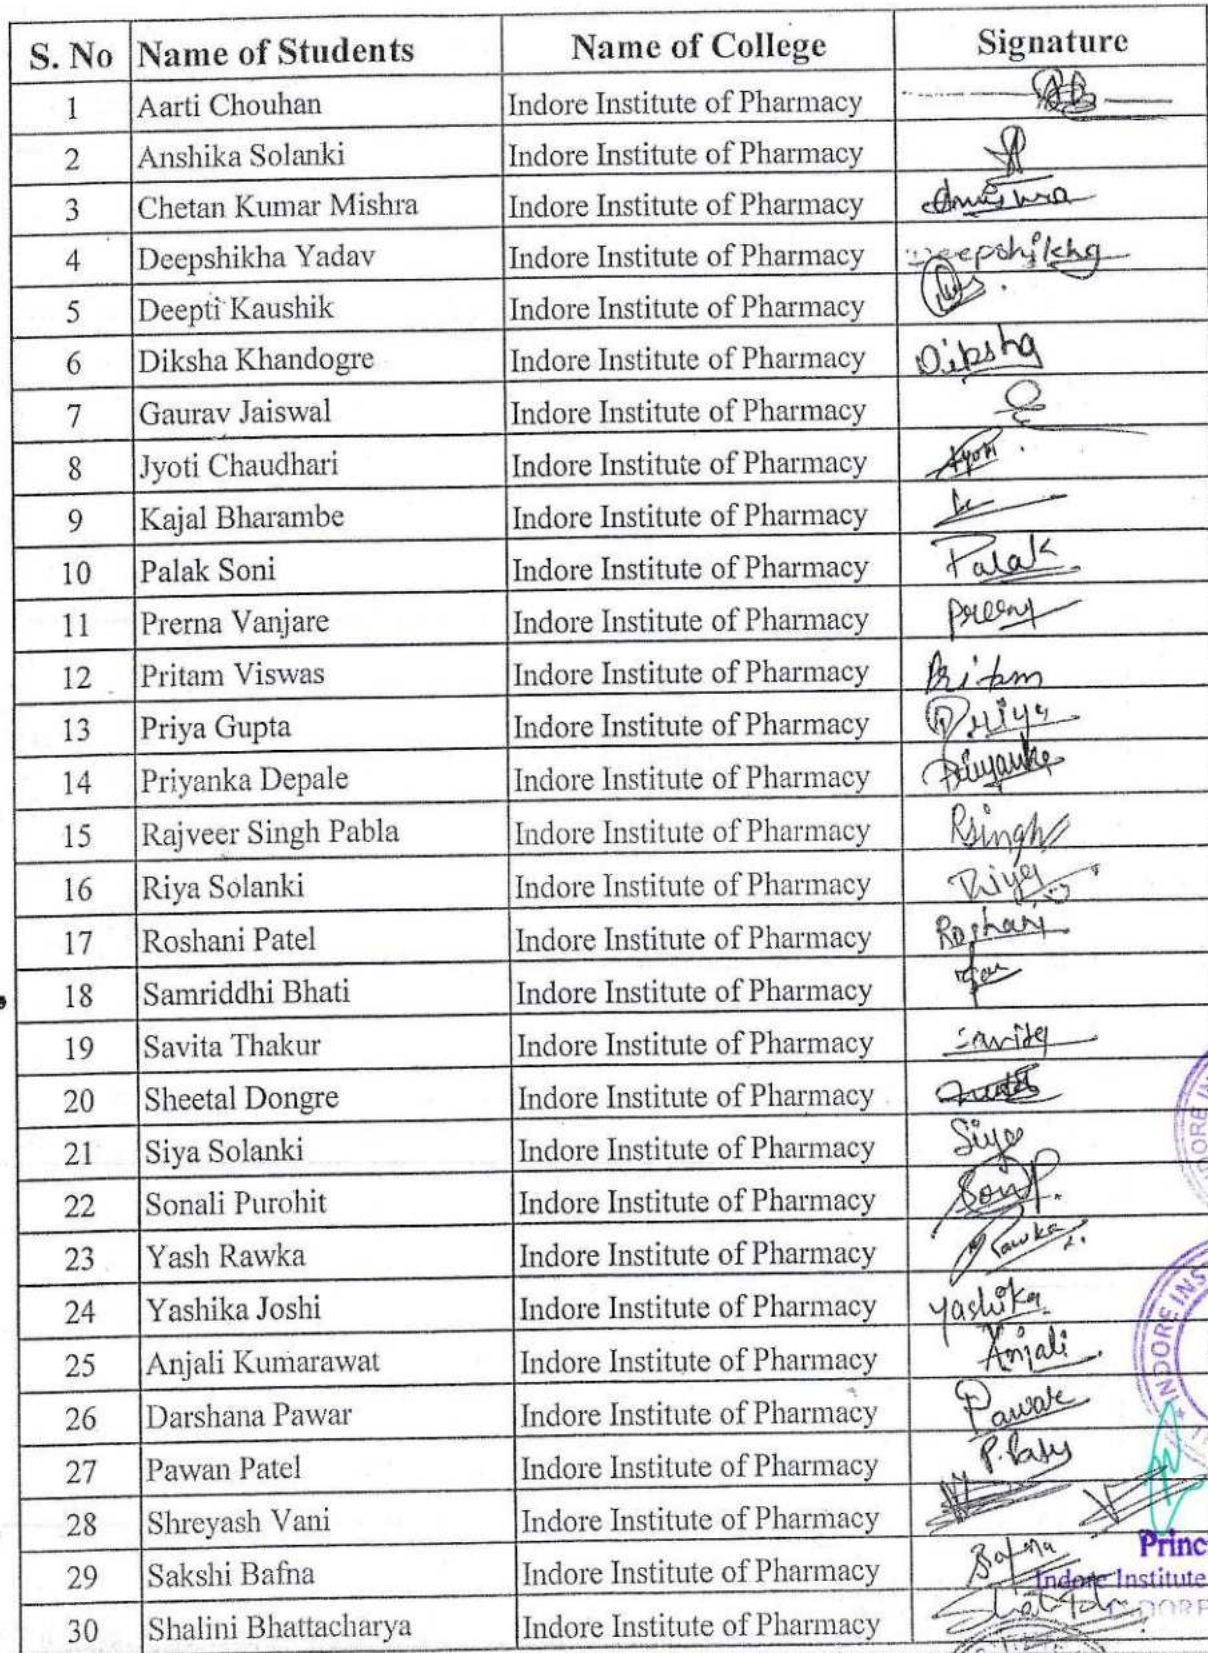 S. No Name of Students Name of College Signature
1 Aarti Chouhan Indore Institute of Pharmacy
2 Anshika Solanki Indore Institute of Pharmacy
3 Chetan Kumar Mishra Indore Institute of Pharmacy
4 Deepshikha Yadav Indore Institute of Pharmacy Deepshikha
5 Deepti Kaushik Indore Institute of Pharmacy
6 Diksha Khandogre Indore Institute of Pharmacy Diksha
7 Gaurav Jaiswal Indore Institute of Pharmacy
8 Jyoti Chaudhari Indore Institute of Pharmacy Jyoti
9 Kajal Bharambe Indore Institute of Pharmacy
10 Palak Soni Indore Institute of Pharmacy Palak
11 Prerna Vanjare Indore Institute of Pharmacy
12 Pritam Viswas Indore Institute of Pharmacy Pritam
13 Priya Gupta Indore Institute of Pharmacy Priya
14 Priyanka Depale Indore Institute of Pharmacy Priyanka
15 Rajveer Singh Pabla Indore Institute of Pharmacy Rsingh
16 Riya Solanki Indore Institute of Pharmacy Riya
17 Roshani Patel Indore Institute of Pharmacy Roshani
18 Samriddhi Bhati Indore Institute of Pharmacy
19 Savita Thakur Indore Institute of Pharmacy Savita
20 Sheetal Dongre Indore Institute of Pharmacy
21 Siya Solanki Indore Institute of Pharmacy Siya
22 Sonali Purohit Indore Institute of Pharmacy
23 Yash Rawka Indore Institute of Pharmacy Rawka
24 Yashika Joshi Indore Institute of Pharmacy Yashika
25 Anjali Kumarawat Indore Institute of Pharmacy Anjali
26 Darshana Pawar Indore Institute of Pharmacy Pawar
27 Pawan Patel Indore Institute of Pharmacy
28 Shreyash Vani Indore Institute of Pharmacy
29 Sakshi Bafna Indore Institute of Pharmacy Bafna
30 Shalini Bhattacharya Indore Institute of Pharmacy
INDORE INS
Princ
Indore Institute
INDORE